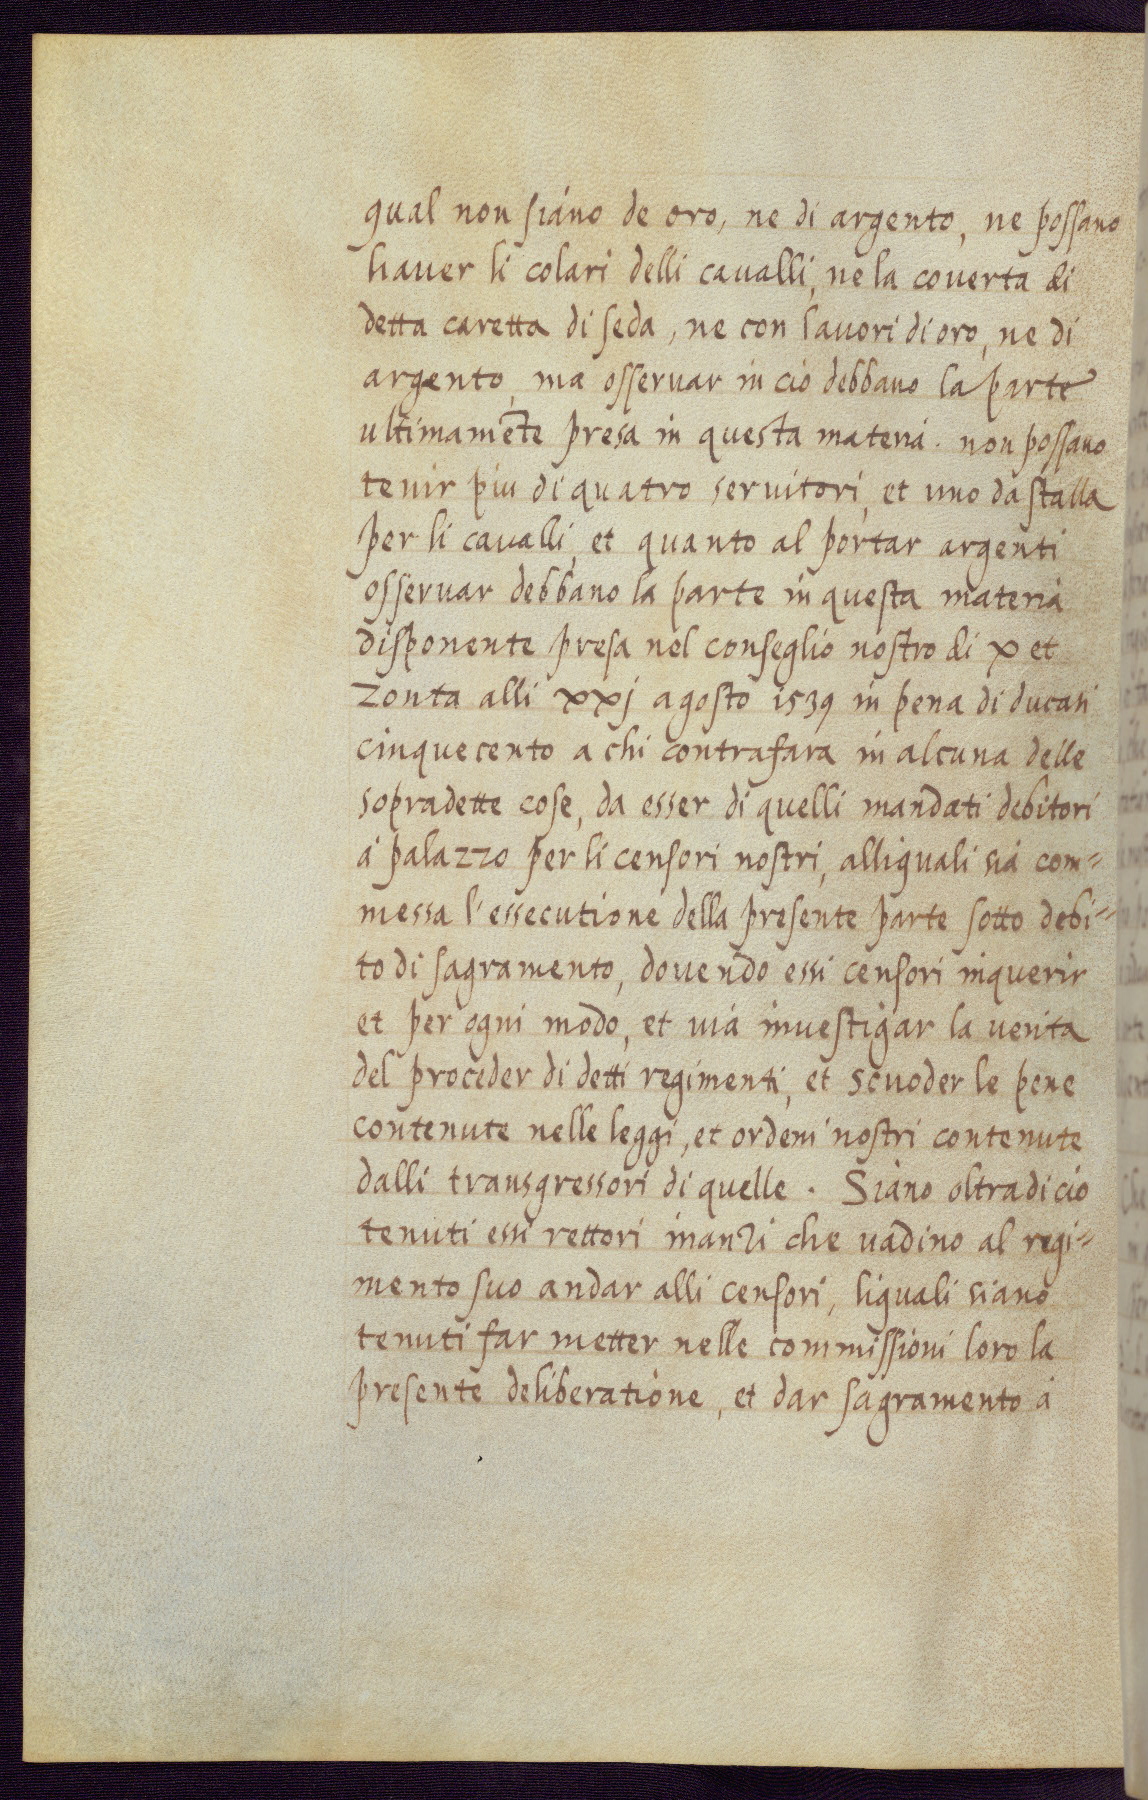 qual non siáno de oro, ne di argento, ne possano
hauer li colari delli cavalli, ne la coverta di
detta caretta di seda, ne con lauori di oro, ne di
argento, ma osseruar in ciò debbano la parte
ultimamēte presa in questa materiá. non possano
tenir piu di quatro servitori, et uno da stalla
per li cavalli, et quanto al portar argenti
osseruar debbano la parte in questa materiá
disponente presa nel conseglio nostro di x et
Zonta alli xxj agosto 1539 in pena di ducati
cinquecento a chi contrafara in alcuna delle
sopradette cose, da esser di quelli mandati debitori
á palazzo per li censori nostri, alliquali siá com=
messa l'essecutione della presente parte sotto debi=
to di sagramento, dovendo essi censori inquerir
et per ogni modo, et uiá investigar la verita
del proceder di detti regimenti, et scuoder le pene
contenute nelle leggi, et ordeni nostri contenute
dalli transgressori di quelle. Siáno oltra di ciò
tenuti essi rettori inanzi che uadino al regi=
mento suo andar alli censori, liquali siano
tenuti far metter nelle commissioni loro la
presente deliberatione, et dar sagramento á